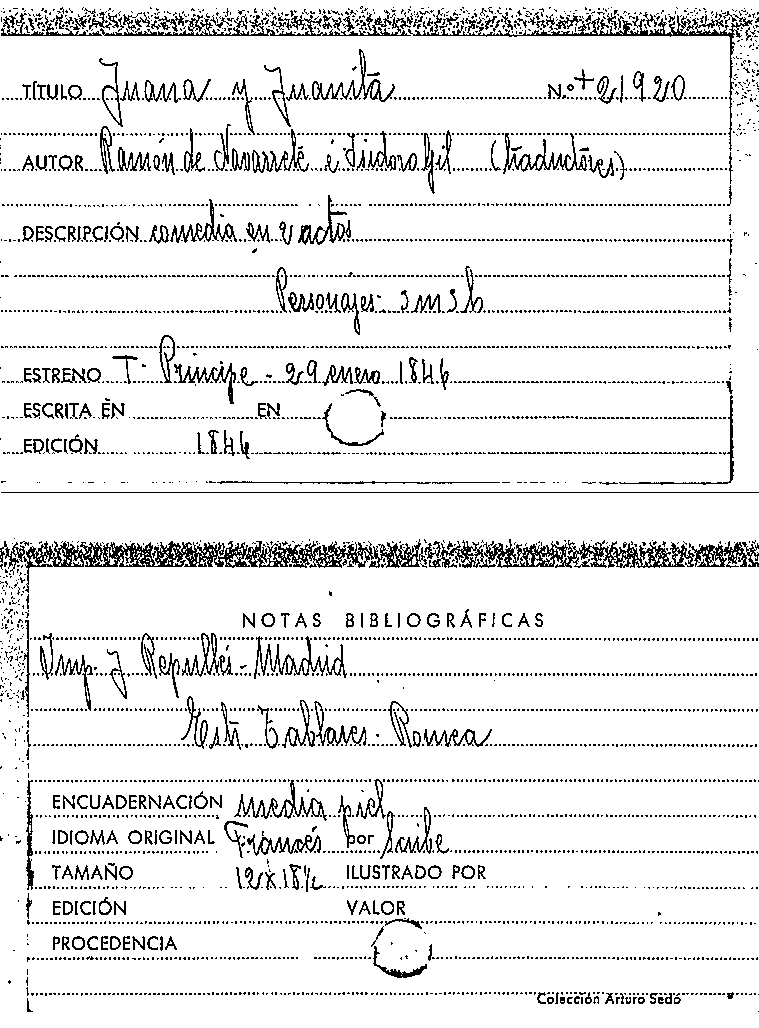 TÍTULO Juana y Juanita N.º + 21920
AUTOR Ramón de Navarrete é Isidoro Gil (traductores)
DESCRIPCIÓN comedia en 2 actos
Personajes- 3 m 3 h
ESTRENO T. Principe - 29 enero 1846
ESCRITA EN EN
EDICIÓN 1846
NOTAS BIBLIOGRÁFICAS
Imp. J. Repullés - Madrid
Estr. Tablares - Romea
ENCUADERNACIÓN media piel
IDIOMA ORIGINAL Francés por Scribe
TAMAÑO 12 x 18½ ILUSTRADO POR
EDICIÓN VALOR
PROCEDENCIA
Colección Arturo Sedó